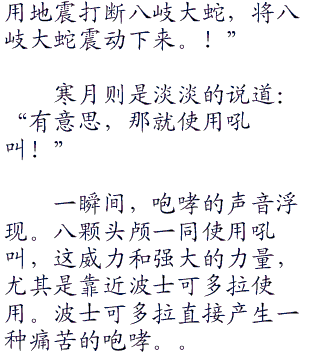 用地震打断八岐大蛇，将八
岐大蛇震动下来。！”
寒月则是淡淡的说道：
“有意思，那就使用吼
叫！”
一瞬间，咆哮的声音浮
现。八颗头颅一同使用吼
叫，这威力和强大的力量，
尤其是靠近波士可多拉使
用。波士可多拉直接产生一
种痛苦的咆哮。。